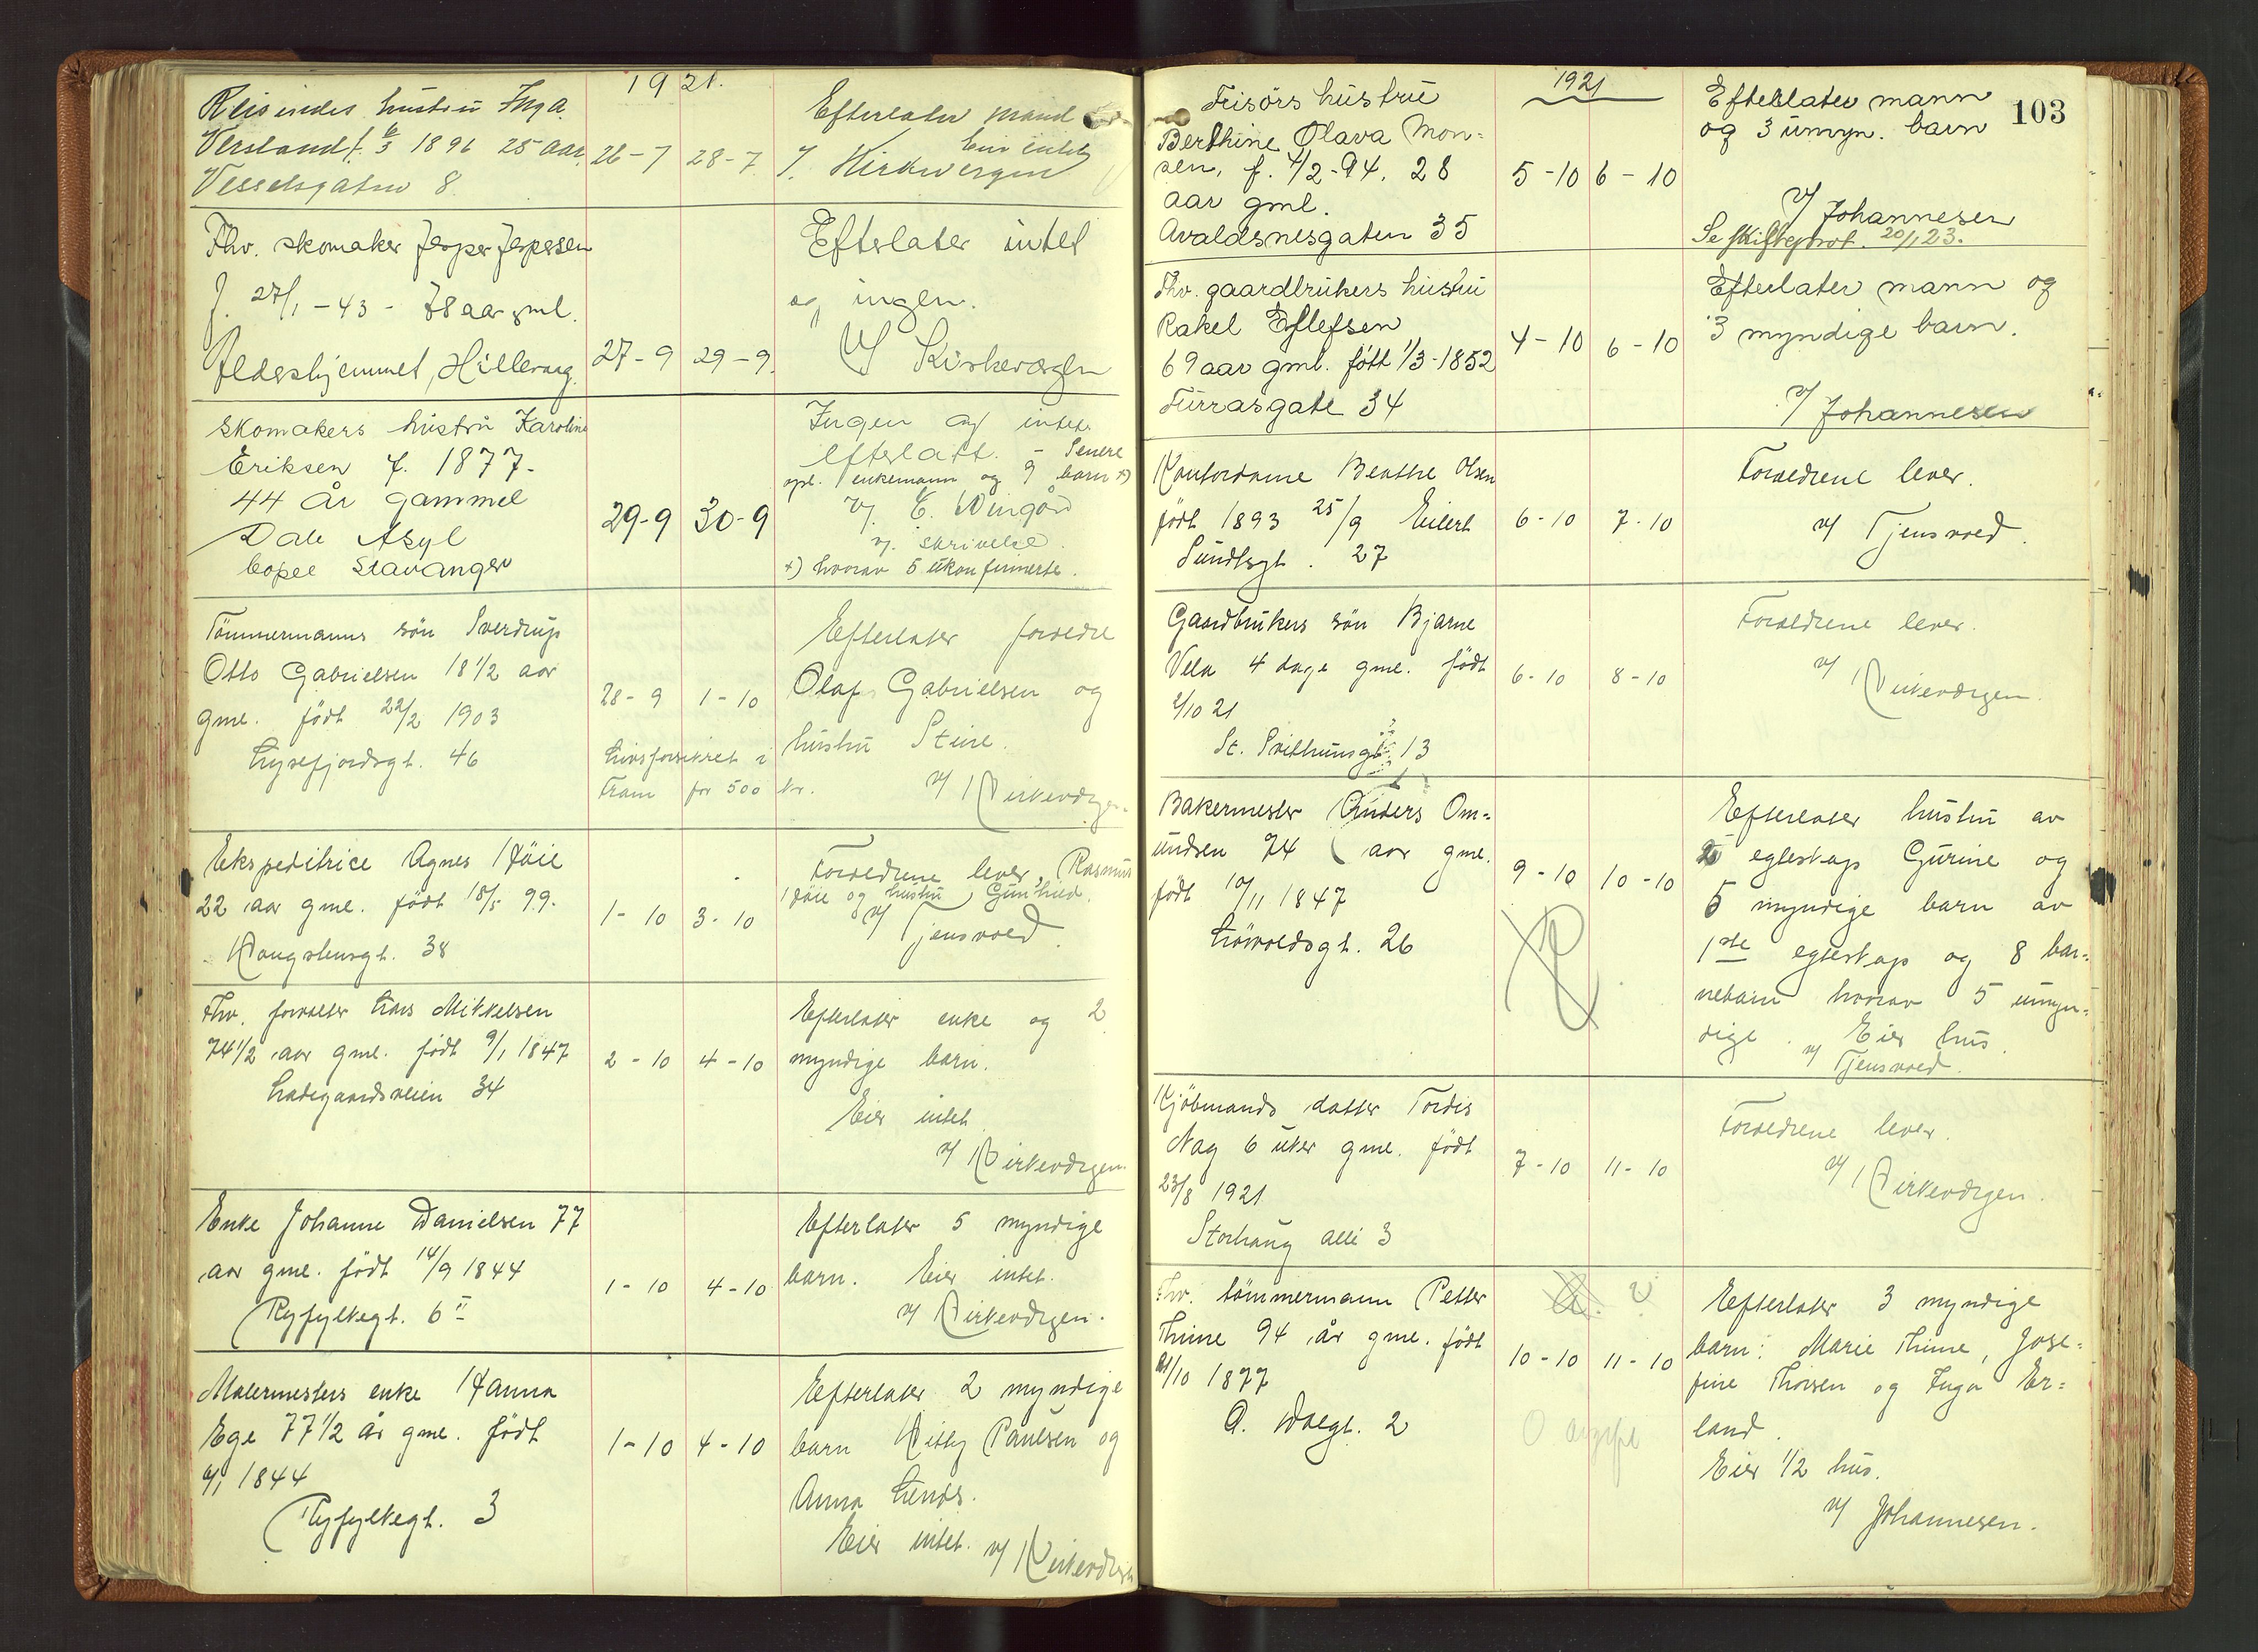 1921.
Reisendes hustru Inga
Versland f. 6/3 1896 25 aar
Vesselsgaten 8.
26-7 28-7
Efterlater mand
Eier intet
v. Kirkevergen
Fhv. skomaker Jesper Jespersen
f. 27/1-43 - 78 aar gml.
Aldershjemmet, Hillevaag.
27-9 29-9.
Efterlater intet
og ingen.
v/ Kirkevergen
Skomakers hustru Karoline
Eriksen f. 1877.
44 År gammel
Dale Asyl
Stavanger
29-9 30-9
Ingen og intet
efterlatt. - Senere
opl. enkemann og 9 barn x)
v/. E. Wingård
v/. skrivelse.
x) hvorav 5 ukonfirmerte.
Tömmermanns sön Sverdrup
Otto Gabrielsen 18 1/2 aar
gml. födt 22/2 1903
Lysefjordsgt. 46
28-9 1-10
Livsforsikret i
Fram for 500 kr.
Efterlater forældre
Olaf Gabrielsen og
hustru Stine.
v/ Kirkevergen.
Ekspeditrice Agnes Höie
22 aar gml. födt 18/5 99.
Kongstensgt. 38
1-10 3-10
Forældrene lever, Rasmus
Höie og hustru Gunhild.
v/ Tjensvold.
Fhv. forvalter Lars Mikkelsen
74 1/2 aar gml. födt 9/1 1847
Ladegaardsveien 34
2-10 4-10
Efterlater enke og 2
myndige barn.
Eier intet.
v/ Kirkevergen
Enke Johanne Danielsen 77
aar gml. födt 14/9 1844
Ryfylkegt. 6 II
1-10 4-10
Efterlater 5 myndige
barn. Eier intet.
v/ Kirkevergen.
Malermesters enke Hanna
Ege 77 1/2 år gml. födt
1844
Ryfylkegt. 3
1-10 4-10
Efterlater 2 myndige
barn Kitty Paulsen og
Anna Lunds.
Eier intet. v/ Kirkevergen
103
1921
Frisörs hustru
Berthine Olava Mon-
sen, f. 4/2-94. 28
aar gml.
Avaldsnesgaten 35
5-10 6-10
Efterlater mann
og 3 umyn. barn
v/ Johannesen
Se skifteprot. 20/1 23.
Fhv. gaardbrukers hustru
Rakel Eflefsen
69 aar gml. född 1/3-1852
Furrasgate 34
4-10 6-10
Efterlater mann og
3 myndige barn.
v/ Johannesen
Kontordame Benthe Olsen
födt 1893 25/9 Eilert
Sundtsgt. 27
6-10 7-10
Forældrene lever.
v/ Tjensvold.
Gaardbrukers sön Bjarne
Vela 4 dage gml. födt
2/10 21
St. Svithunsgt. 13
6-10 8-10
Forældrene lever.
v/ Kirkevergen.
Bakermester Anders Om-
undsen 74 aar gml.
födt 10/11 1847
Lövvoldsgt. 26
9-10 10-10
Efterlater hustru av
2 egteskap Gurine og
5 myndige barn av
1ste egteskap og 8 bar-
nebarn hvorav 5 umyn-
dige. Eier hus.
v/ Tjensvold.
Kjöbmands datter Tordis
Nag 6 uker gml. födt
23/8 1921
Storhaug alle 3
7-10 11-10
Forældrene lever.
v/ Kirkevergen.
Fhv. tömmermann Petter
Thime 94 år gml. födt
21/10 1877
O. Doegt. 2
10-10 11-10
Efterlater 3 myndige
barn: Marie Thime, Jose-
fine Thorsen og Inga Er-
land.
Eier 1/2 hus.
v/ Johannesen.